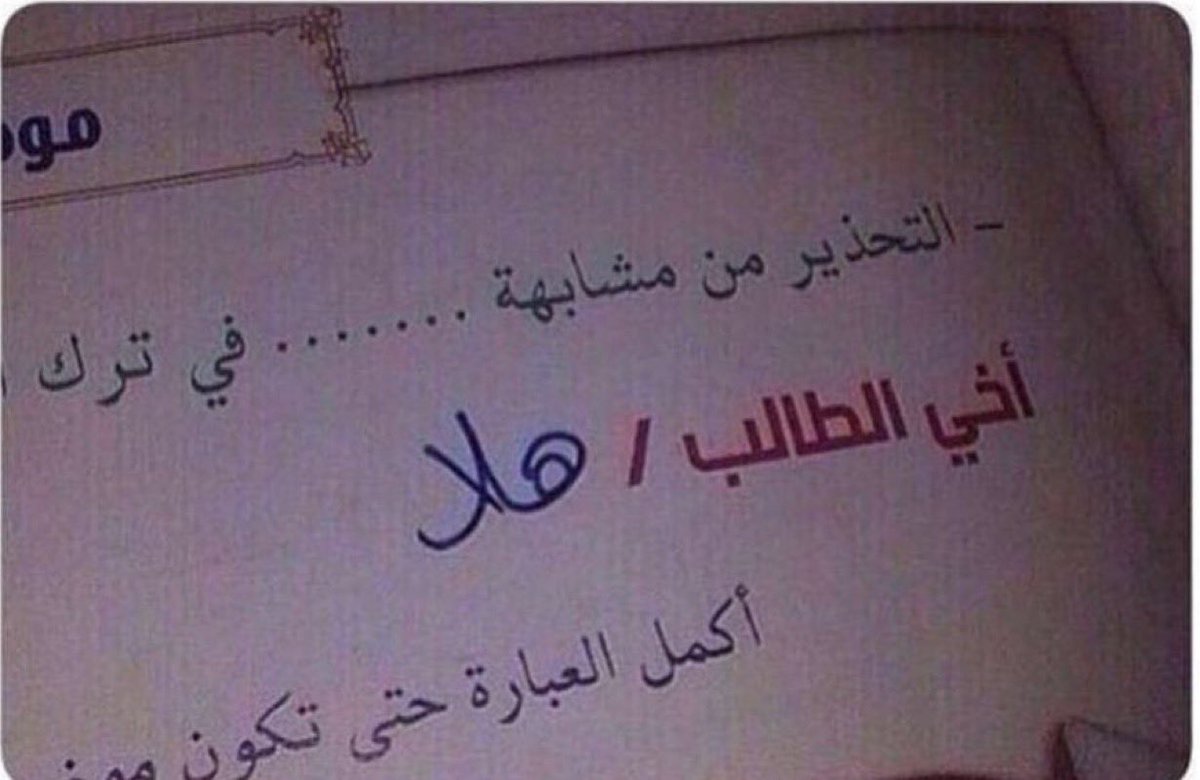 - التحذير من مشابهة ....... في ترك
أخي الطالب / هلا
أكمل العبارة حتى تكون